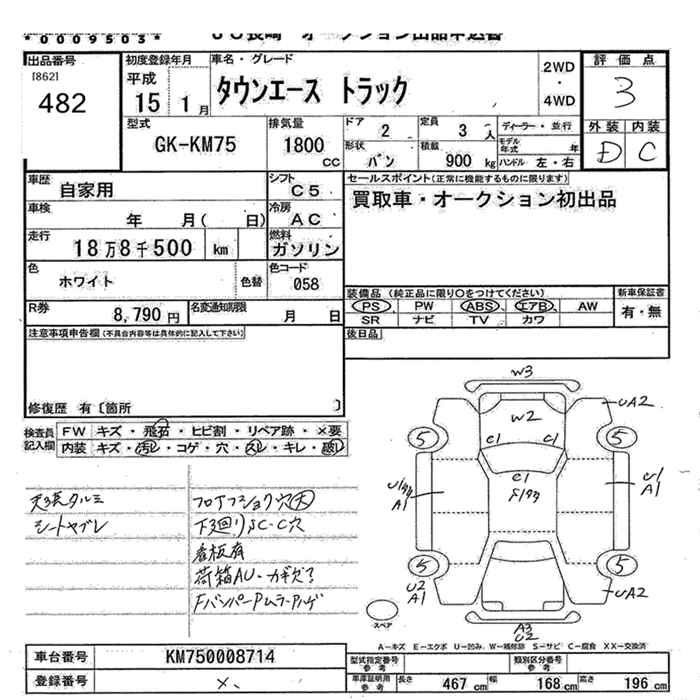 *0009503* JU長崎 オークション出品申込書
出品番号 初度登録年月 車名・グレード 2WD・4WD 評価点
[862] 482 平成15 1月 タウンエース トラック 3
型式 GK-KM75 排気量 1800cc ドア 2 定員 3人 ディーラー・並行 外装 内装
形状 バン 積載 900kg モデル年式 年 ハンドル 左・右 D C
車歴 自家用 シフト C5 セールスポイント(正常に機能するものに限ります)
車検 年 月( 日) 冷房 AC 買取車・オークション初出品
走行 18万8千500 km 燃料 ガソリン
色 ホワイト 色替 色コード 058
装備品(純正品に限り○をつけてください) 新車保証書
R券 8,790円 名変通知期限 月 日 PS PW ABS エアB AW 有・無
SR ナビ TV カワ
注意事項申告欄(不具合内容等は具体的に記入して下さい) 後日品
修復歴 有〔箇所 〕
検査員記入欄 FW キズ・飛石・ヒビ割・リペア跡・×要
内装 キズ・汚レ・コゲ・穴・スレ・キレ・破レ
W3
W2
UA2
C1 C1
5 5
C1
U1
A1
U1
A1
天張タルミ フロアフショク穴大
シートヤブレ 下廻りSC・C穴
看板有
荷箱AU・カギズ
FバンパーPムラ・ハゲ
5 5
U2
A1
UA2
スペア
A3
U2
A-キズ E-エクボ U-凹み W-補修跡 S-サビ C-腐食 XX-交換済
車台番号 KM750008714 型式指定番号 参考 類別区分番号 参考
登録番号 ×、 車庫証明用 参考 長さ 467cm 幅 168cm 高さ 196cm